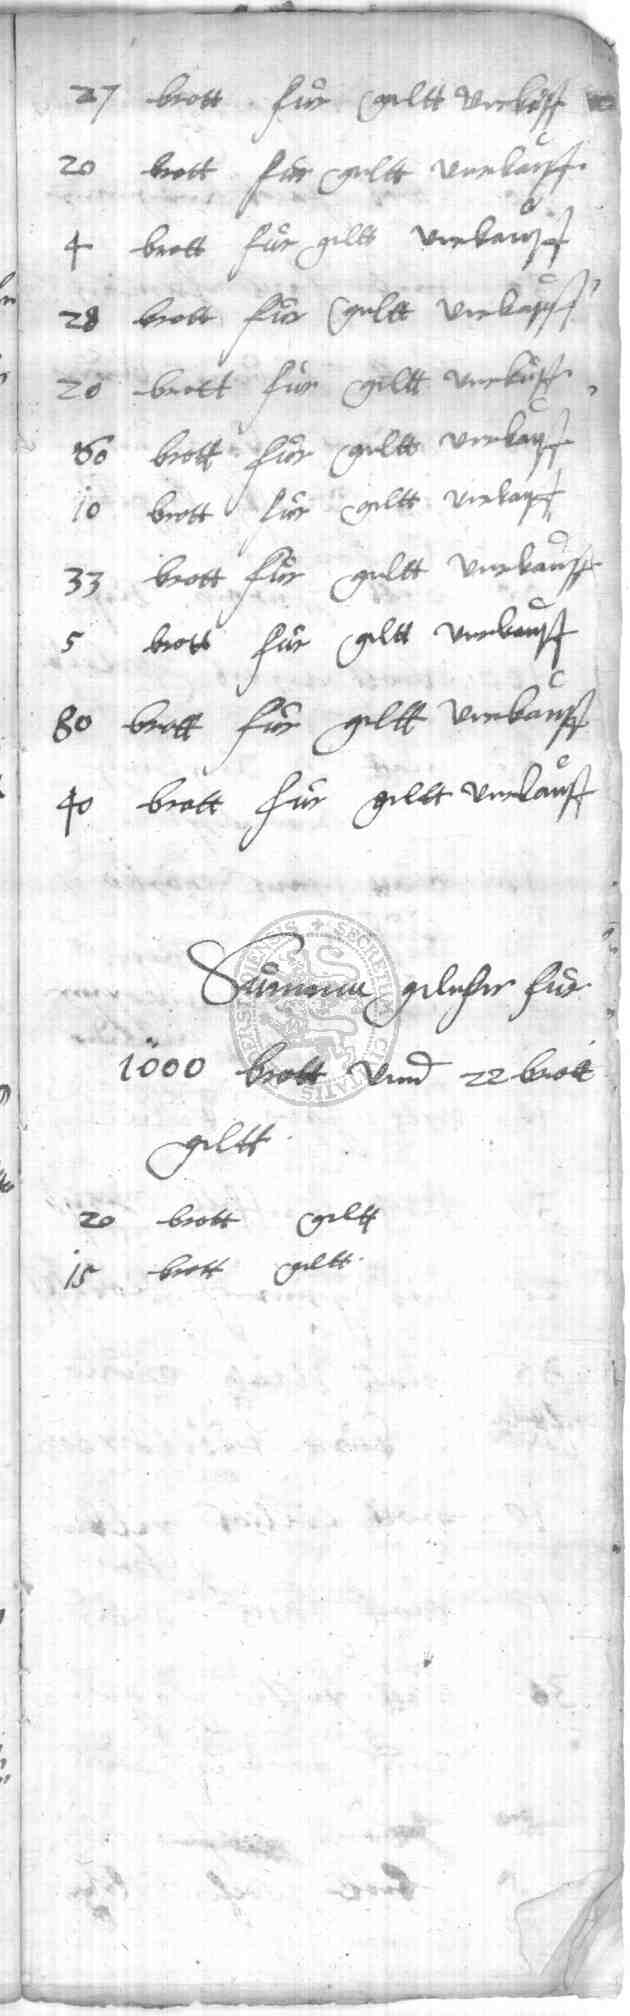 27 brott für geltt verkaufft
20 brott für geltt verkaufft
4 brott für geltt verkaufft
28 brott für geltt verkaufft
20 brott für geltt verkaufft
60 brott für geltt verkaufft
10 brott für geltt verkaufft
33 brott für geltt verkaufft
5 brott für geltt verkaufft
80 brott für geltt verkaufft
40 brott für geltt verkaufft
Summa für
1000 brott vnnd 22 brott
geltt
20 brott geltt
15 brott geltt